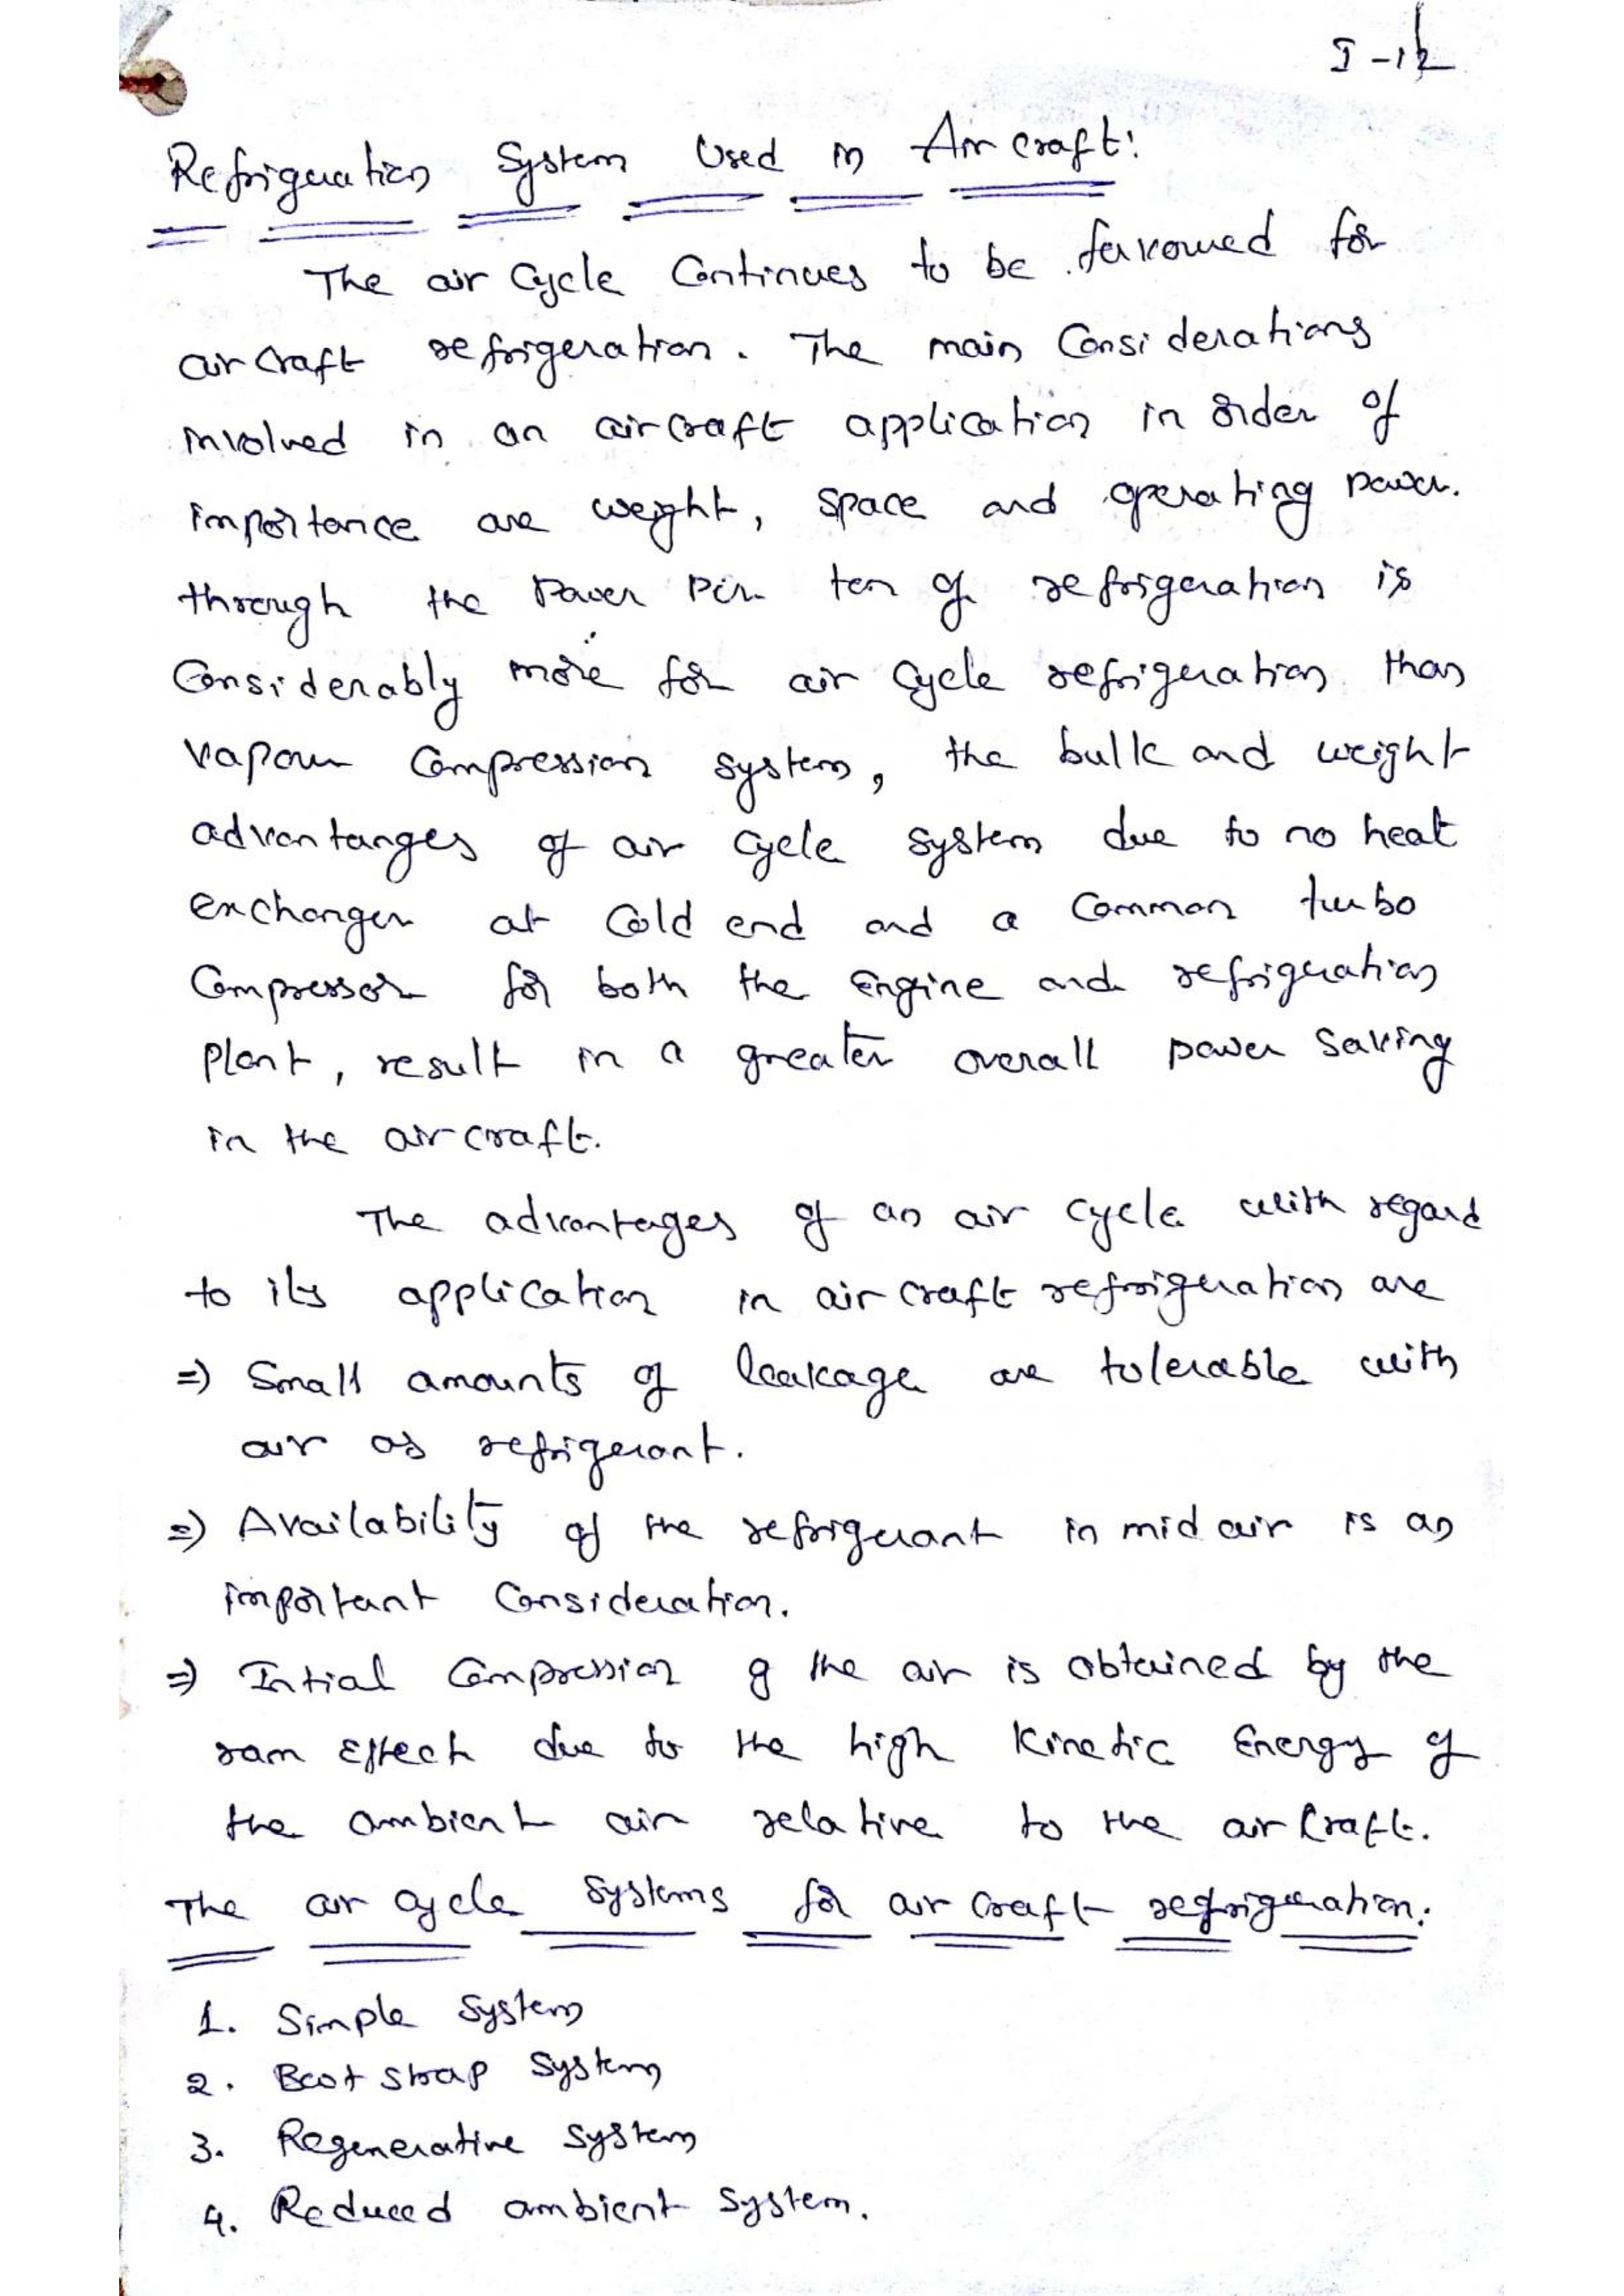 I-12
Refrigeration System Used in Air craft:
The air Cycle Continues to be favoured for
air craft refrigeration. The main Considerations
involved in an air craft application in order of
importance are weight, space and operating power.
through the Power Per ton of refrigeration is
Considerably more for air Cycle refrigeration than
vapour Compression system, the bulk and weight
advantanges of air cycle system due to no heat
exchanger at Cold end and a Common turbo
Compressor for both the Engine and refrigeration
plant, result in a greater overall power Saving
in the air craft.
The advantages of an air cycle with regard
to its application in air craft refrigeration are
=) Small amounts of leakage are tolerable with
air as refrigerant.
=) Availability of the refrigerant in mid air is an
important Consideration.
=) Intial Compression of the air is obtained by the
ram Effect due to the high Kinetic Energy of
the ambient air relative to the air Craft.
The air cycle Systems for air craft refrigeration:
1. Simple System
2. Boot strap System
3. Regenerative System
4. Reduced ambient System.